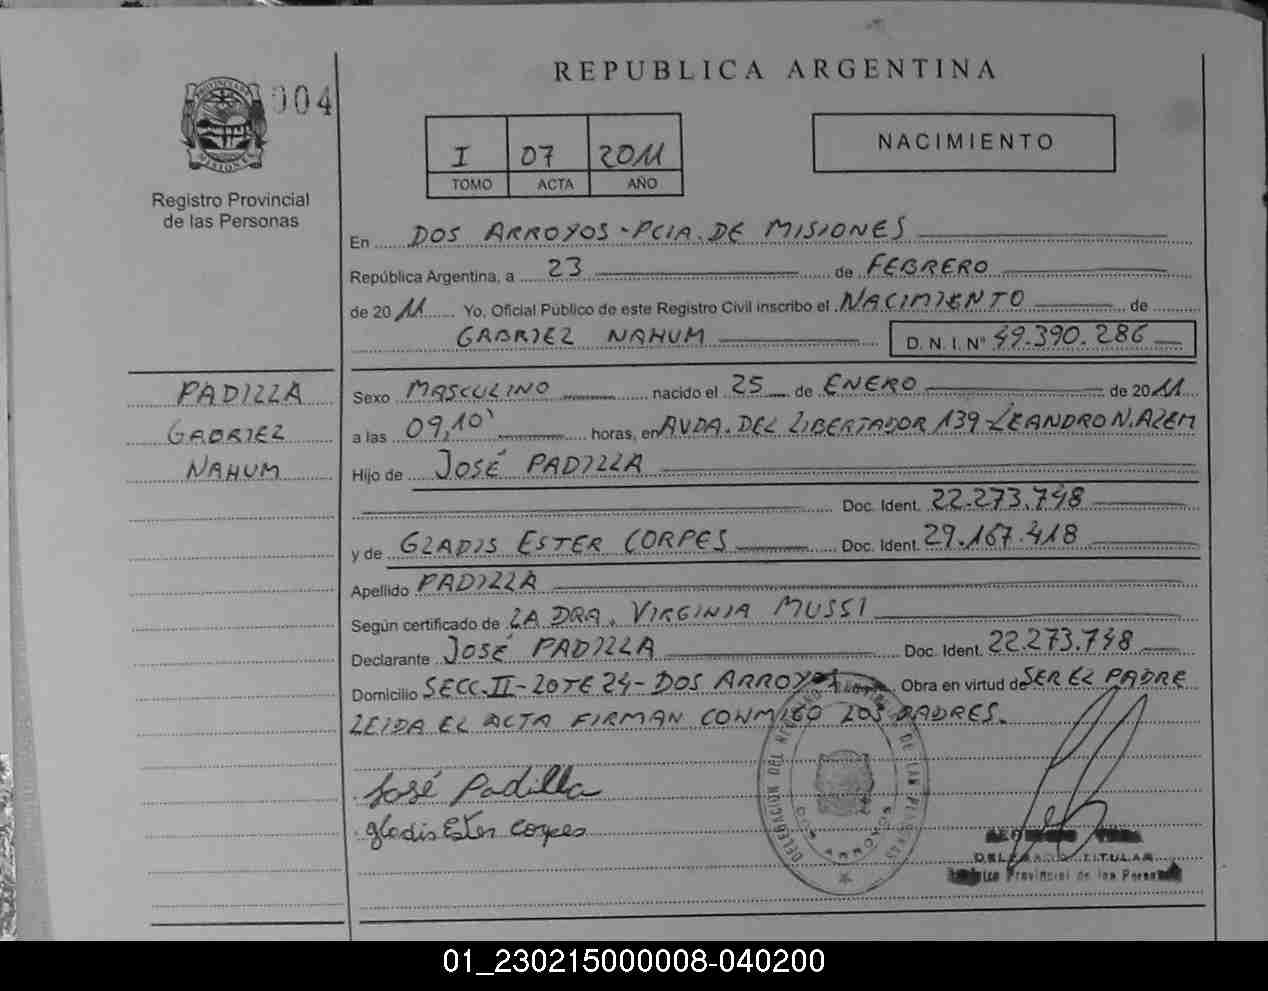 REPUBLICA ARGENTINA
004
PROVINCIA DE
MISIONES
Registro Provincial
de las Personas
I 07 2011
TOMO ACTA AÑO
NACIMIENTO
En DOS ARROYOS - PCIA. DE MISIONES
República Argentina, a 23 de FEBRERO
de 2011 Yo, Oficial Público de este Registro Civil inscribo el NACIMIENTO de
GABRIEL NAHUM D. N. I. Nº 49.390.286
PADILLA
GABRIEL
NAHUM
Sexo MASCULINO nacido el 25 de ENERO de 2011
a las 09,10' horas, en AVDA. DEL LIBERTADOR 139 - LEANDRO N. ALEM
Hijo de JOSÉ PADILLA
Doc. Ident. 22.273.748
y de GLADIS ESTER CORPES Doc. Ident. 29.167.418
Apellido PADILLA
Según certificado de LA DRA. VIRGINIA MUSSI
Declarante JOSÉ PADILLA Doc. Ident. 22.273.748
Domicilio SECC. II - LOTE 24 - DOS ARROYOS Obra en virtud de SER EL PADRE
LEIDA EL ACTA FIRMAN CONMIGO LOS PADRES.
José Padilla
Gladis Ester Corpes
DELEGACIÓN DEL REGISTRO DE LAS PERSONAS
DOS ARROYOS
TITULAR
Provincial de las Personas
01_230215000008-040200